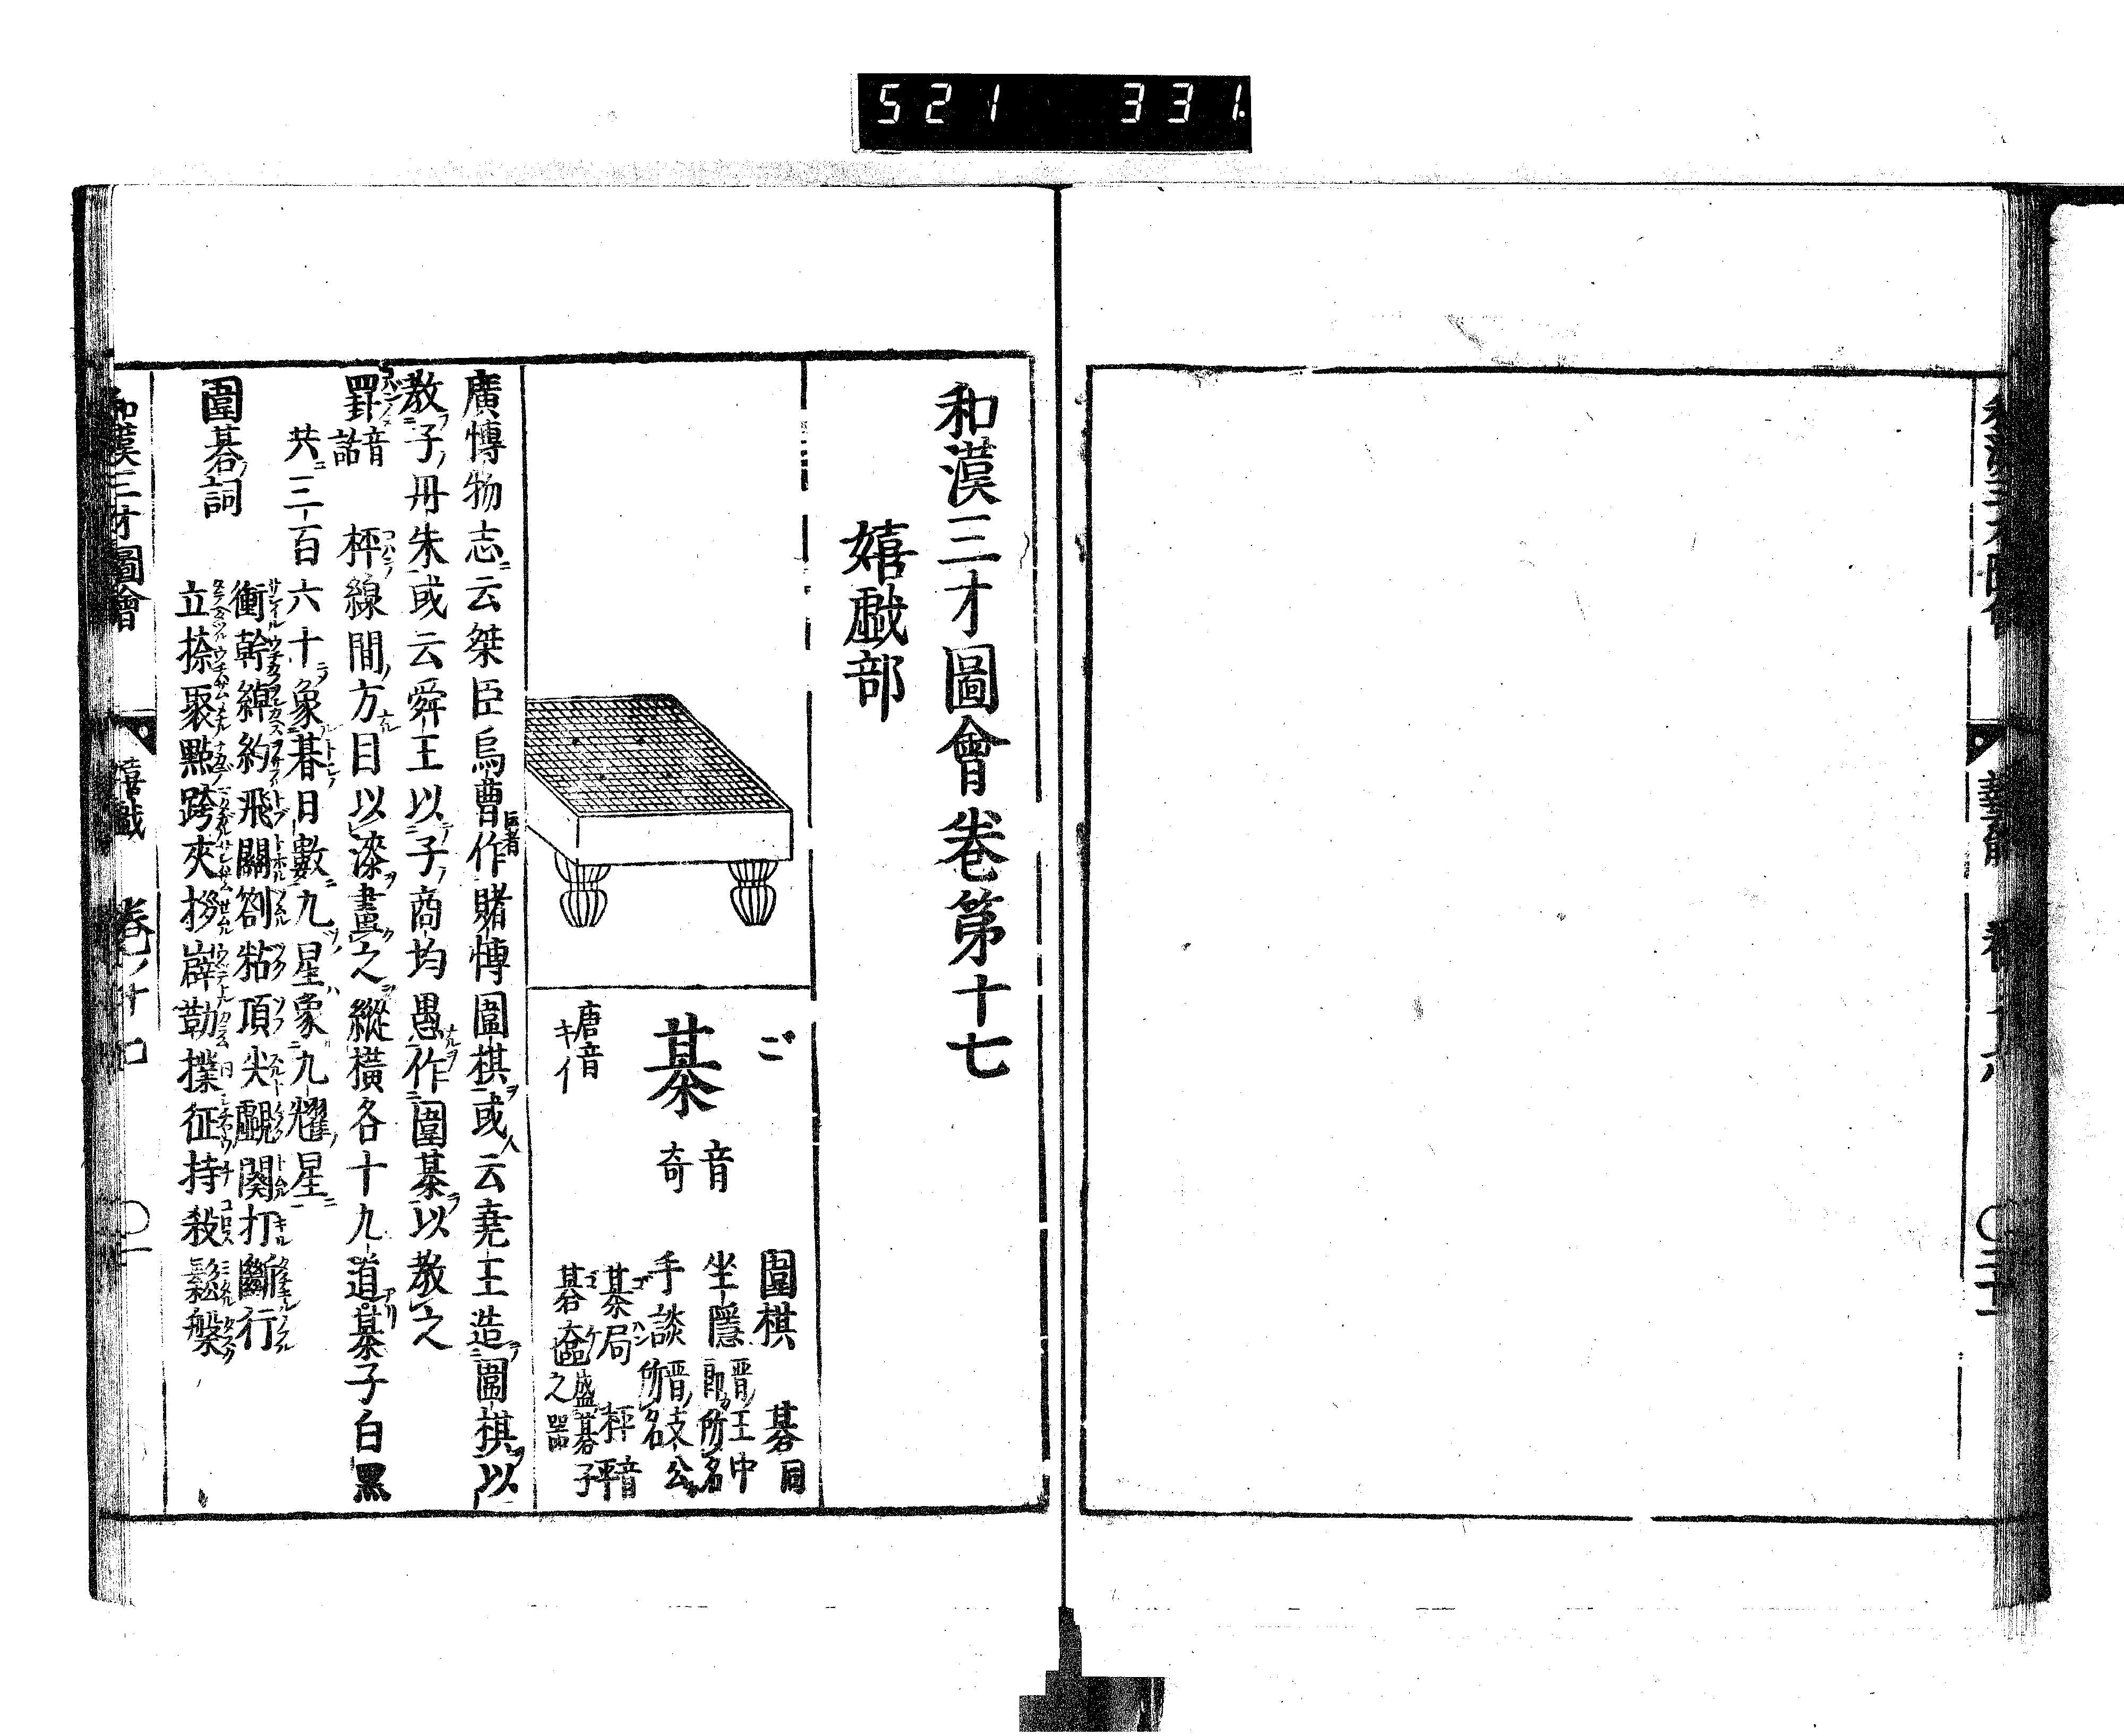 521 331
和漢三才圖會卷第十七
嬉戯部
ご
棊 音奇
唐音
キイ
圍棋 碁同
坐隱 晋王中郎所名
手談 晋支公所名
棊局 枰音平
碁奩 盛碁子之器
廣博物志云桀臣烏曹作賭博圍棋或云堯王造圍棋以
教子丹朱或云舜王以子商均愚作圍棊以教之
罫 音詿 枰線間方目以漆畫之縱橫各十九道棊子白黒
共三百六十象朞日數九星象九耀星
圍碁詞
衝幹綽約飛關劄粘頂尖覷門打斷行
立捺聚點跨夾拶嶭勒撲征持殺鬆槃
和漢三才圖會 嬉戯 卷ノ十七 〇一